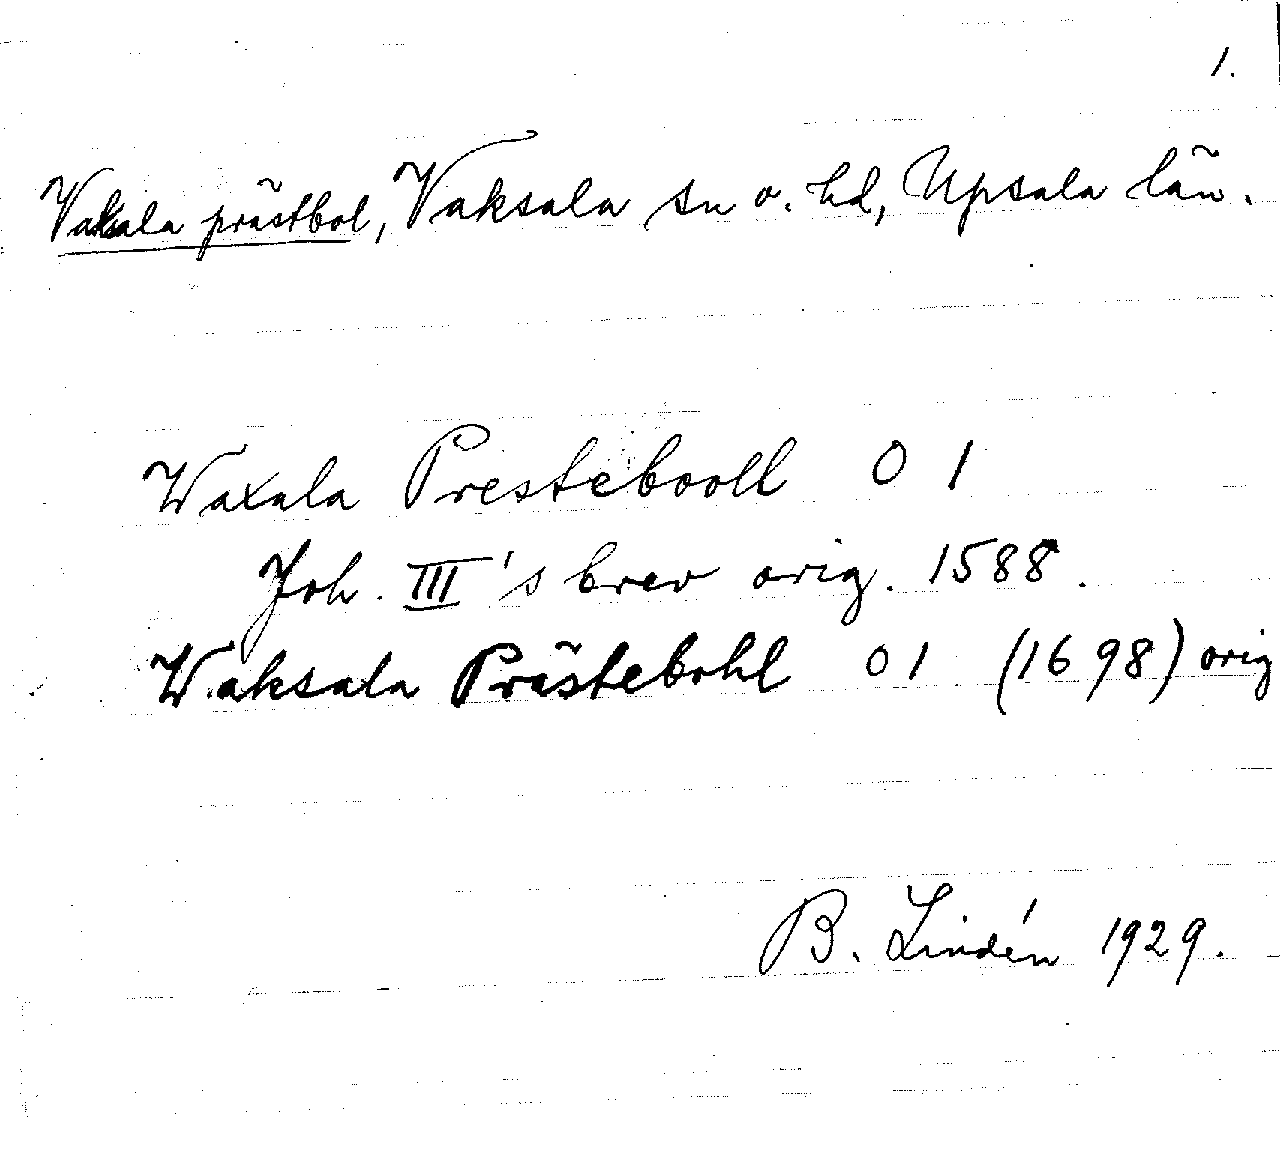 1.
Vaksala prästbol, Vaksala sn o. hd, Upsala län.
Waxala Prestebooll 0 1
Joh. III's brev orig. 1588.
Waksala Prästebohl 0 1 (1698) orig
B. Lindén 1929.